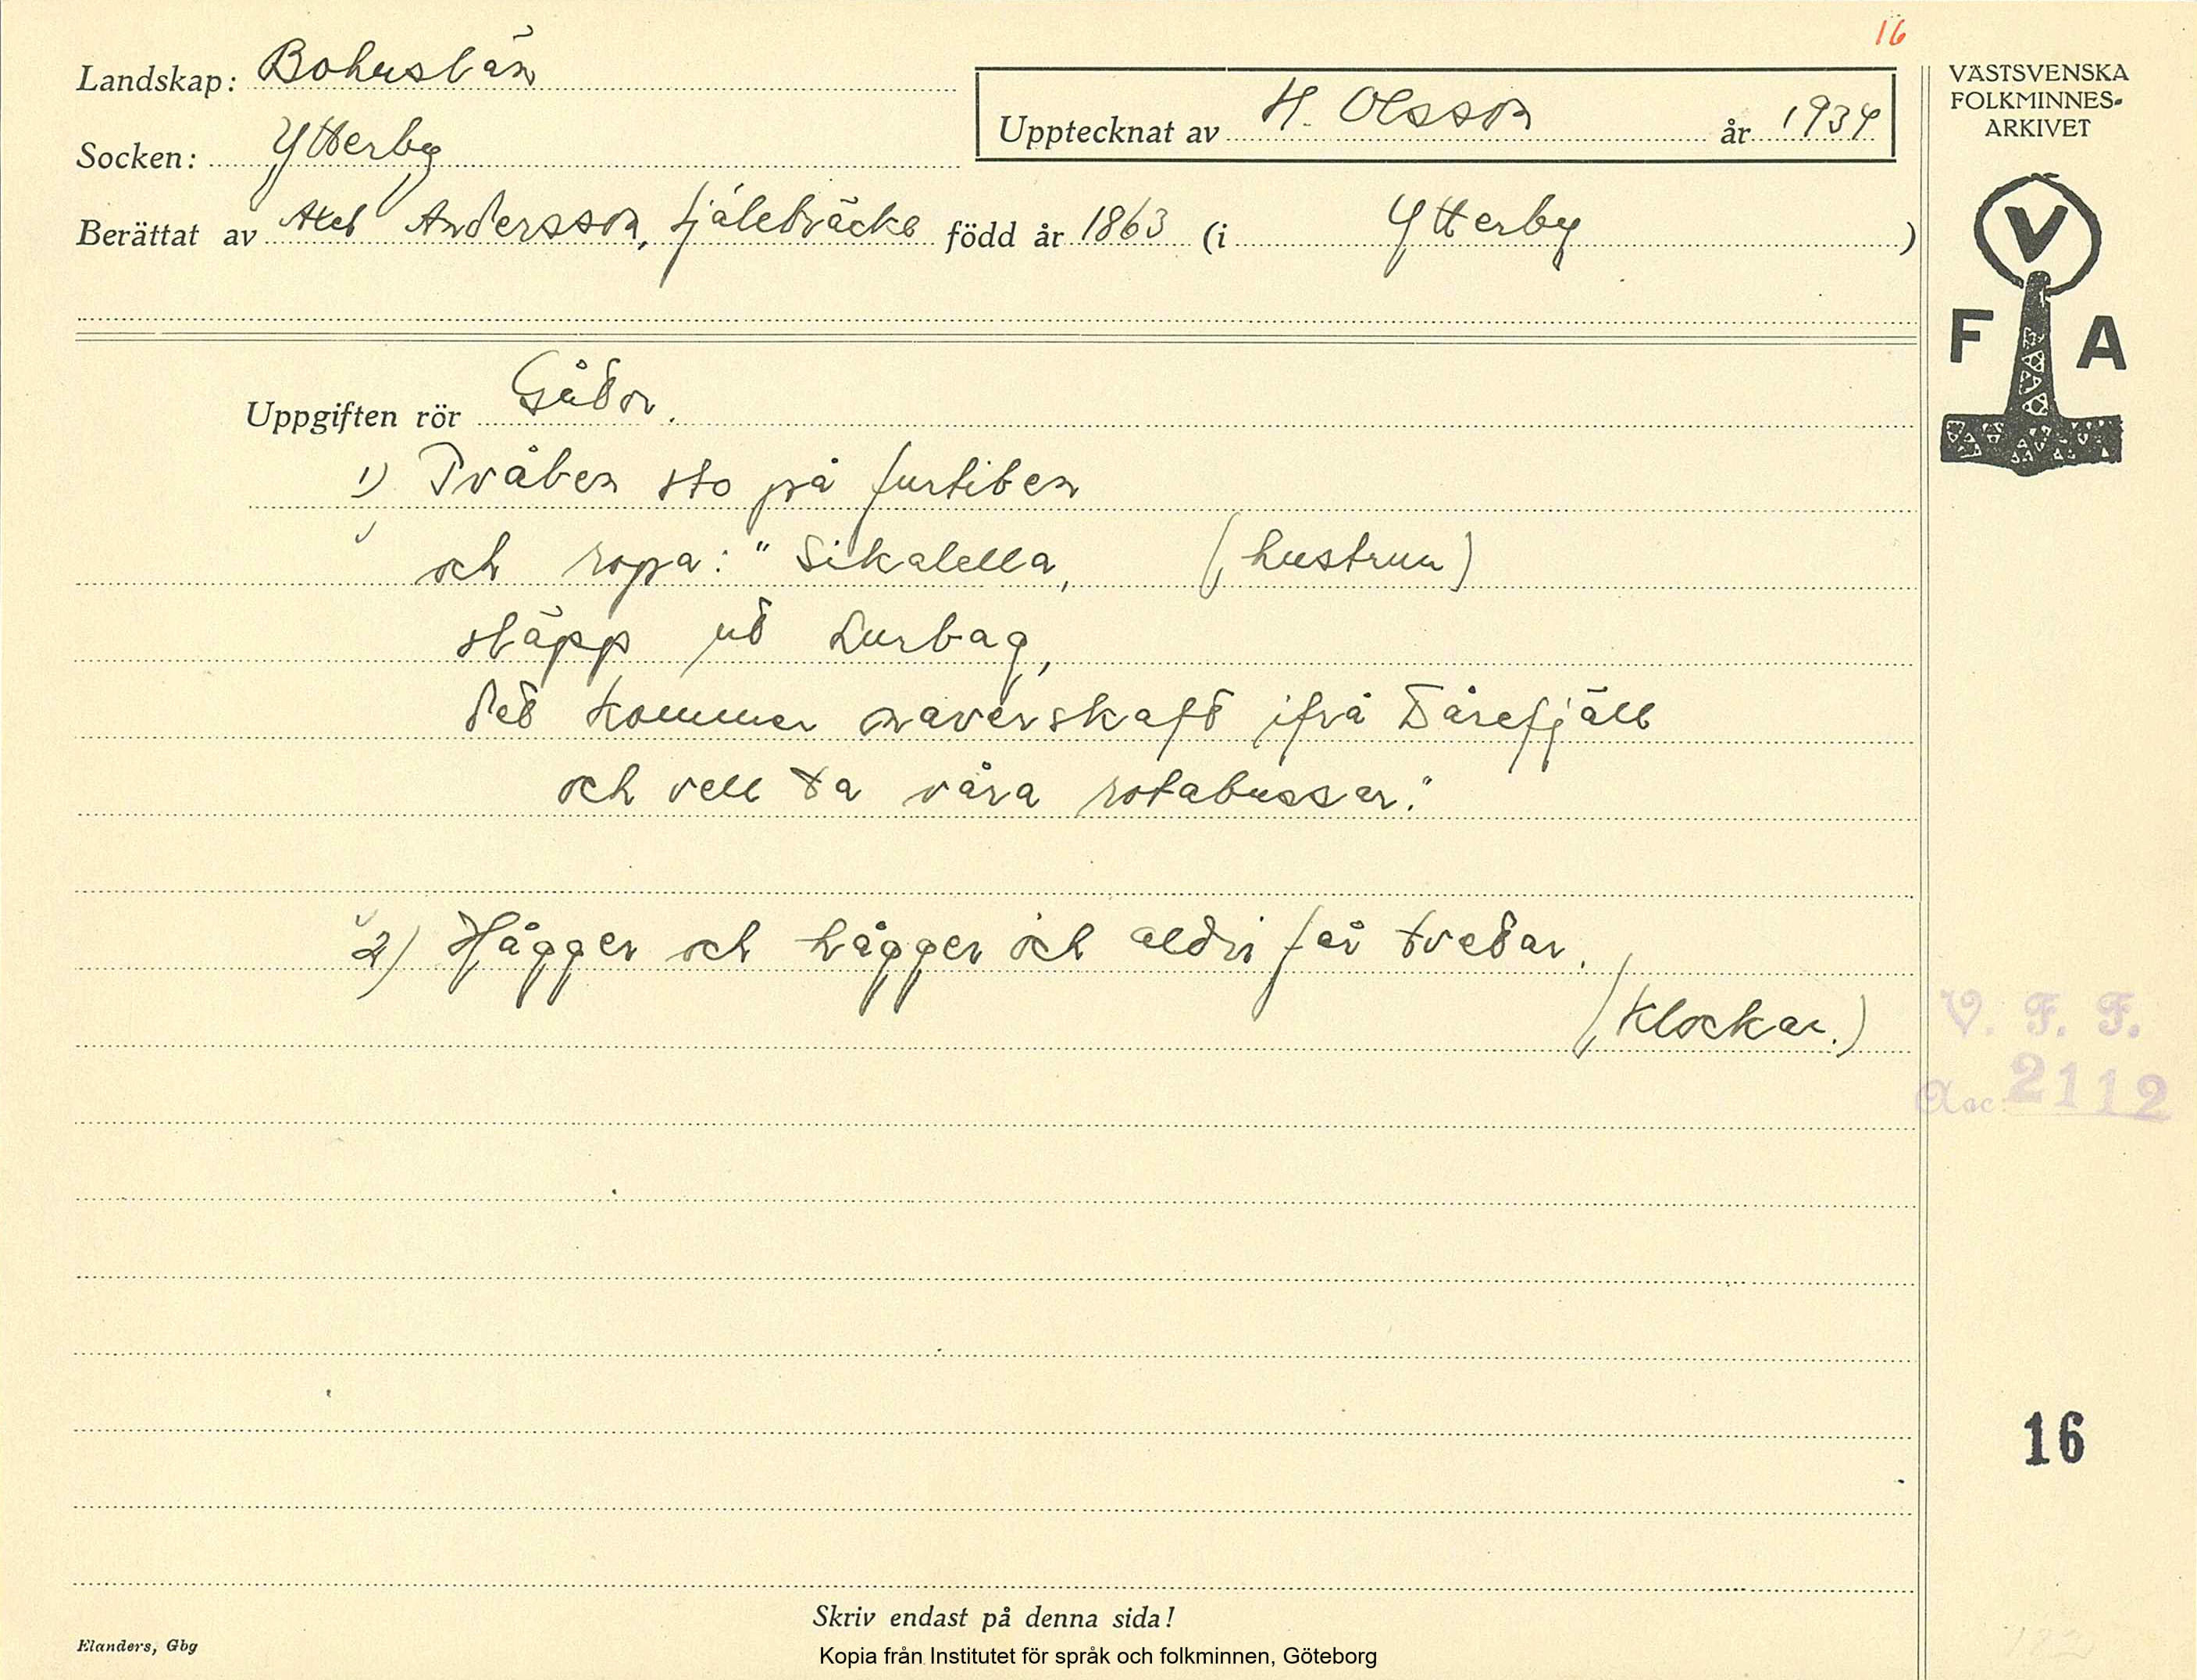 16
Landskap: Bohuslän
Socken: Ytterby
Upptecknat av H. Olsson år 1934
Berättat av Axel Andersson, fjälebräcke född år 1863 (i Ytterby)
VÄSTSVENSKA
FOLKMINNES-
ARKIVET
V
F A
Uppgiften rör Gåtor.
1) Pråben sto på furtiben
och ropa: "Sikalella, (hustrun)
släpp ut Lurbag,
det kommer naverskaft ifrå Dårefjäll
och vell ta våra rotabussar."
2) Hågger och hågger och aldri får tvetar.
(Klockan.)
V. F. F.
Acc: 2112
16
Skriv endast på denna sida!
Elanders, Gbg
Kopia från Institutet för språk och folkminnen, Göteborg